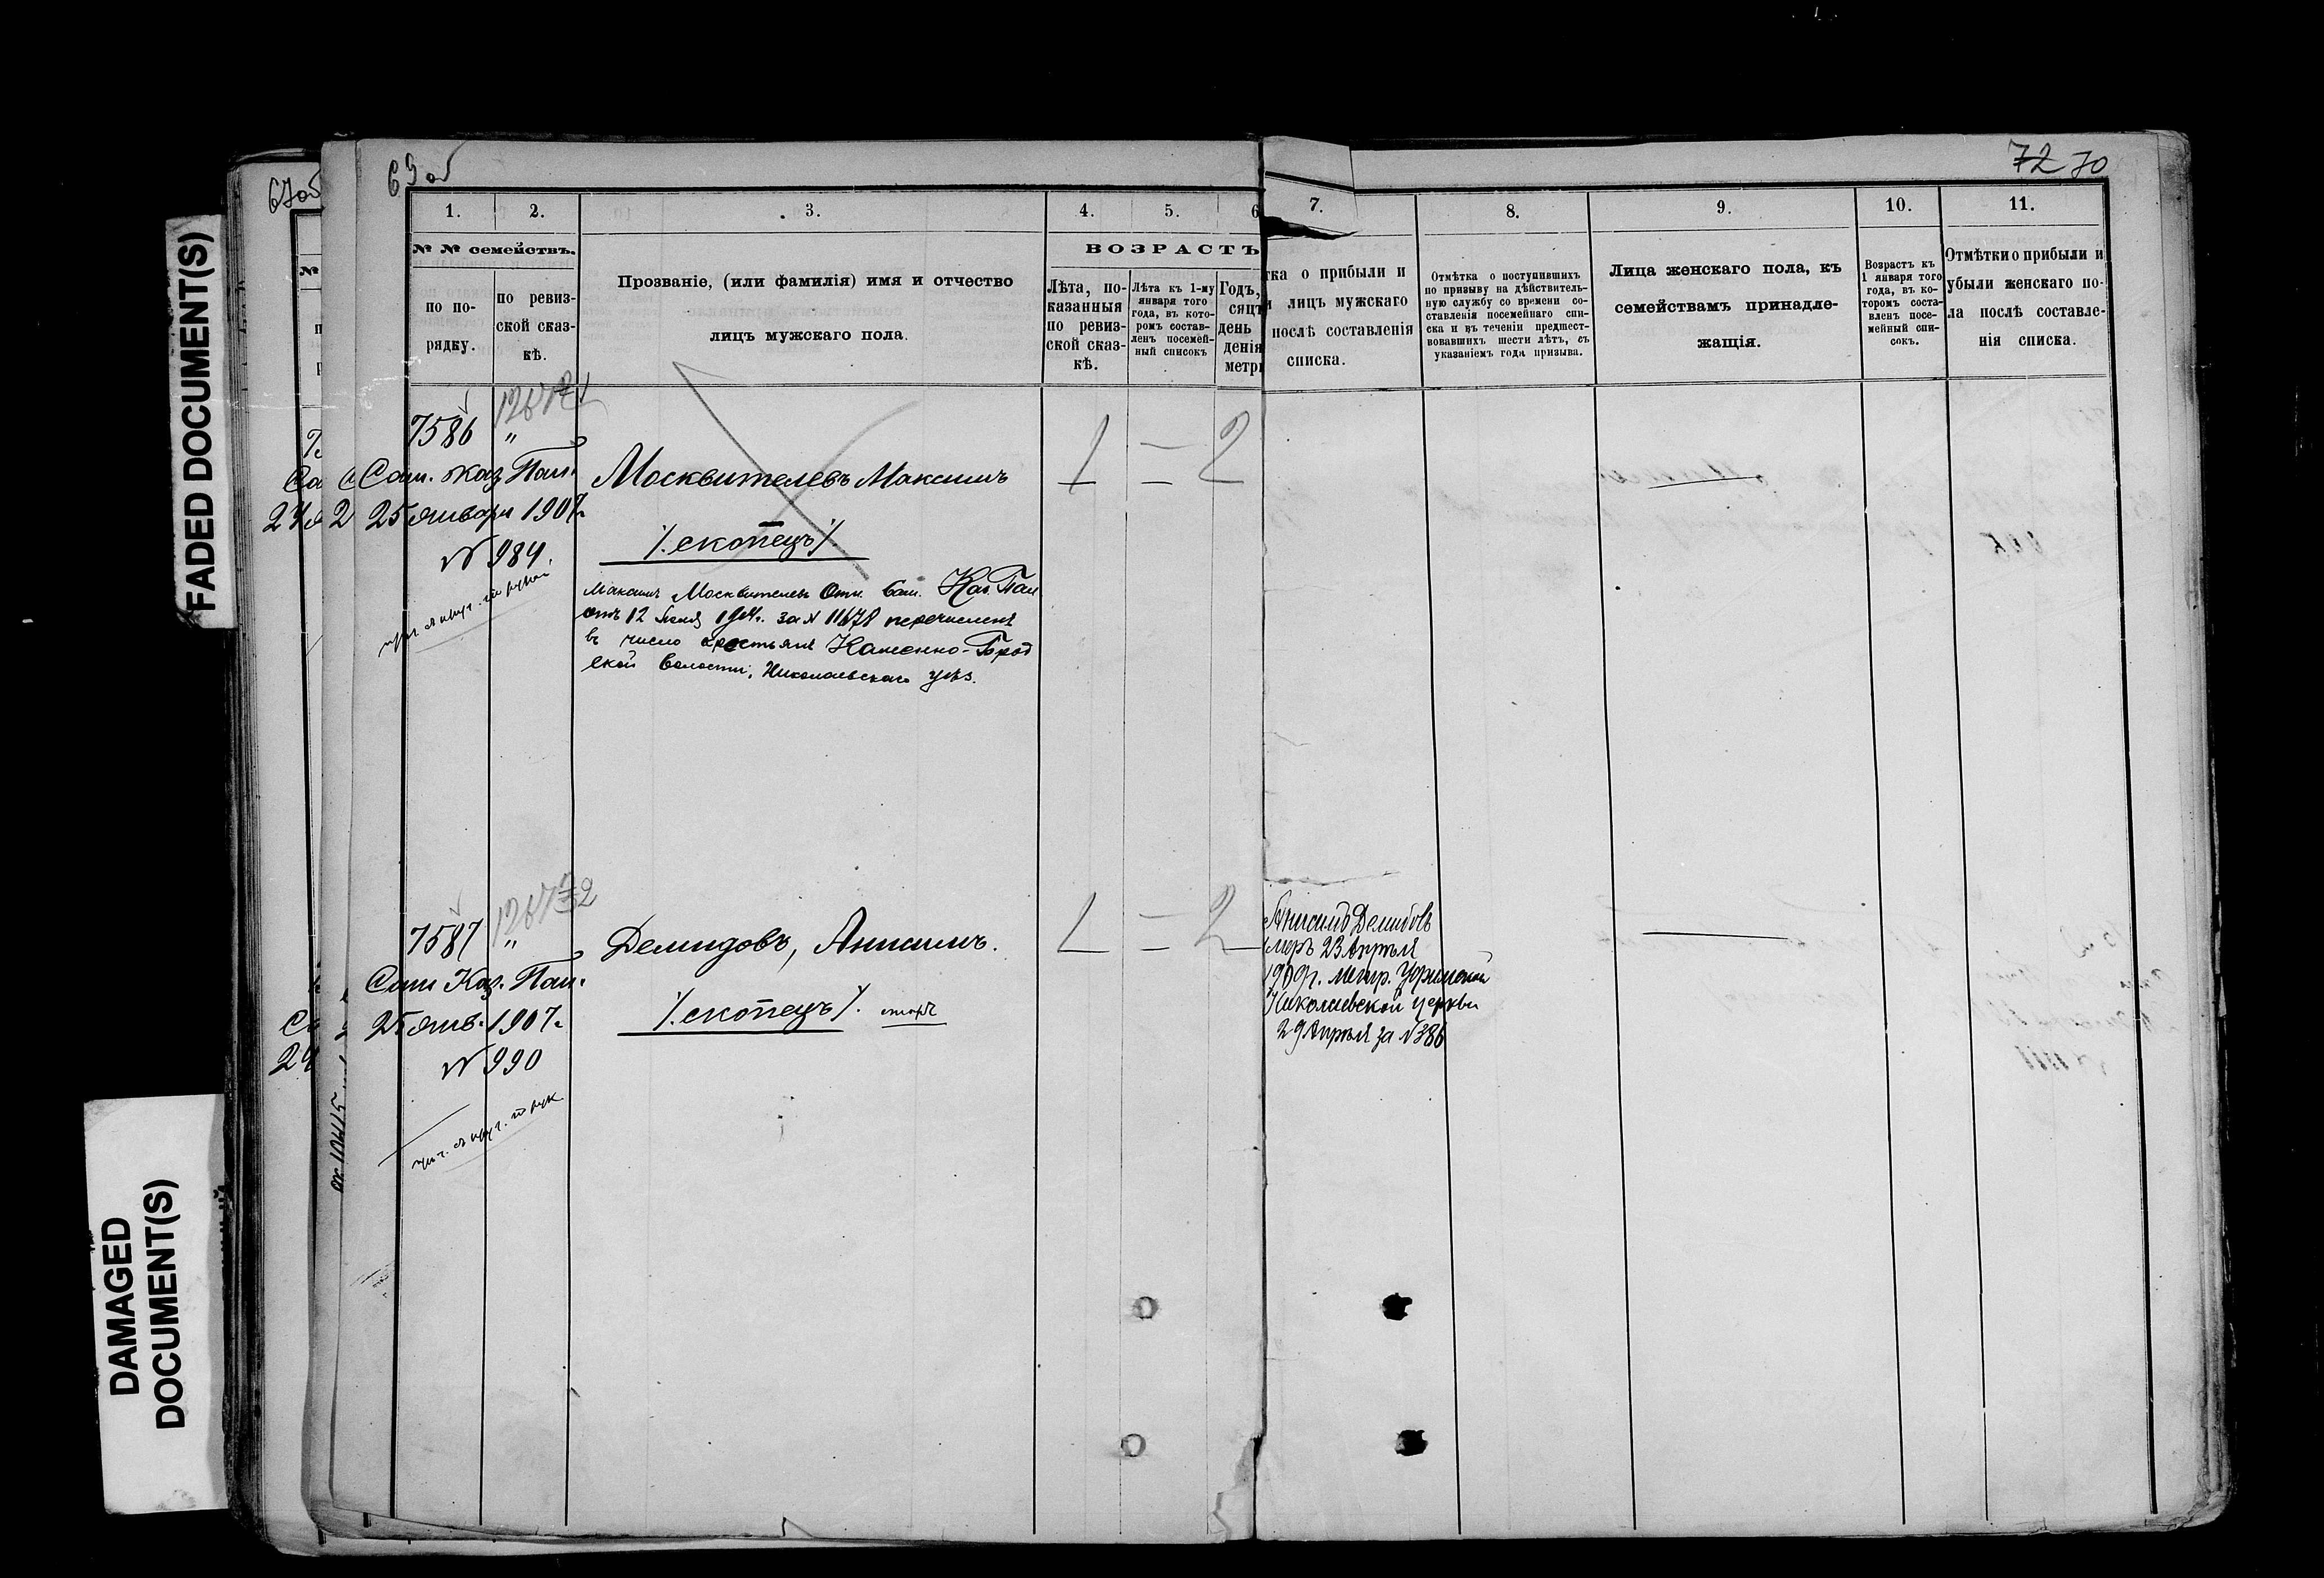 FADED DOCUMENT(S)
DAMAGED
DOCUMENT(S)
67об
69об
72 70
1.
2.
3.
4.
5.
6
7.
8.
9.
10.
11.
№ № семействъ.
по по-
рядку.
по ревиз-
ской сказ-
кѣ.
Прозваніе, (или фамилія) имя и отчество
лицъ мужскаго пола.
ВОЗРАСТЪ
Лѣта, по-
казанныя
по ревиз-
ской сказ-
кѣ.
Лѣта къ 1-му
января того
года, въ кото-
ромъ состав-
ленъ посемей-
ный списокъ
Годъ,
сяцъ
день
денія
метри
тка о прибыли и
и лицъ мужскаго
послѣ составленія
списка.
Отмѣтка о поступившихъ
по призыву на дѣйствитель-
ную службу со времени со-
ставленія посемейнаго спи-
ска и въ теченіи предшест-
вовавшихъ шести лѣтъ, съ
указаніемъ года призыва.
Лица женскаго пола, къ
семействамъ принадле-
жащія.
Возрастъ къ
1 января того
года, въ ко-
торомъ соста-
вленъ посе-
мейный спи-
сокъ.
Отмѣтки о прибыли и
убыли женскаго по-
ла послѣ составле-
нія списка.
7586 "
Сам. каз. Пал.
25 января 1907 г.
№ 984.
Москвителевъ Максимъ
/. скопецъ /.
Максимъ Москвителевъ Отн. Сам. Каз. Пал
отъ 12 Іюня за № 11678 перечисленъ
въ число крестьянъ Каменно-Брод
ской волости, Николаевскаго уѣз.
7587 "
Сам Каз. Пал.
25 янв. 1907 г.
№ 990
Демидовъ, Анисимъ.
/. скопецъ /.
Анисимъ Демидовъ
меръ 23 Апрѣля
1909 г. метр.
Николаевской церкви
29 Апрѣля за № 386